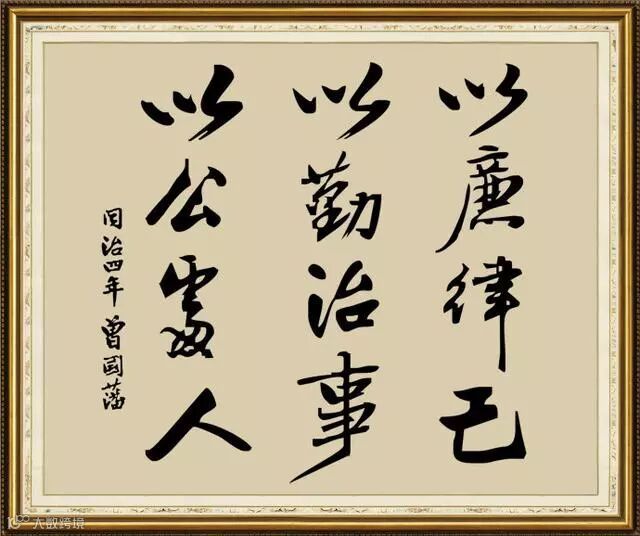 以廉律己
以勤治事
以公處人
同治四年 曾國藩
大数跨境